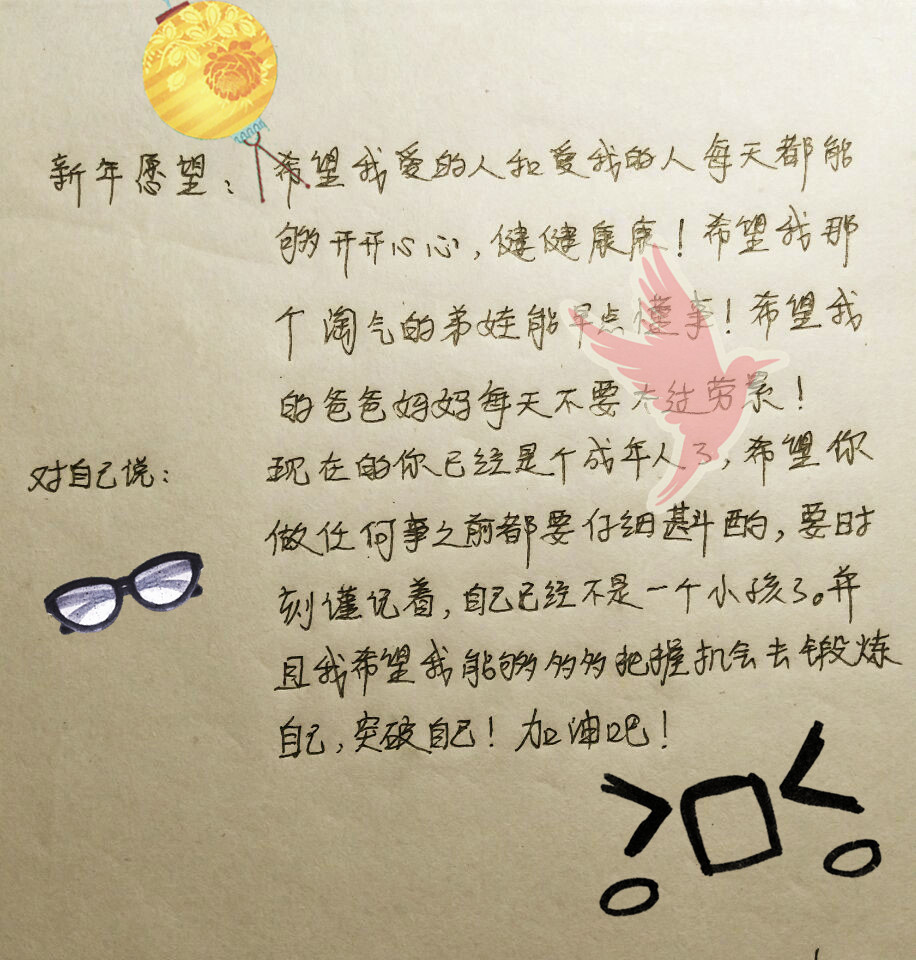 新年愿望：希望我爱的人和爱我的人每天都能
够开开心心，健健康康！希望我那
个淘气的弟娃能早点懂事！希望我
的爸爸妈妈每天不要太过劳累！
对自己说：现在的你已经是个成年人了，希望你
做任何事之前都要仔细斟酌，要时
刻谨记着，自己已经不是一个小孩了。并
且我希望我能够多多把握机会去锻炼
自己，突破自己！加油吧！